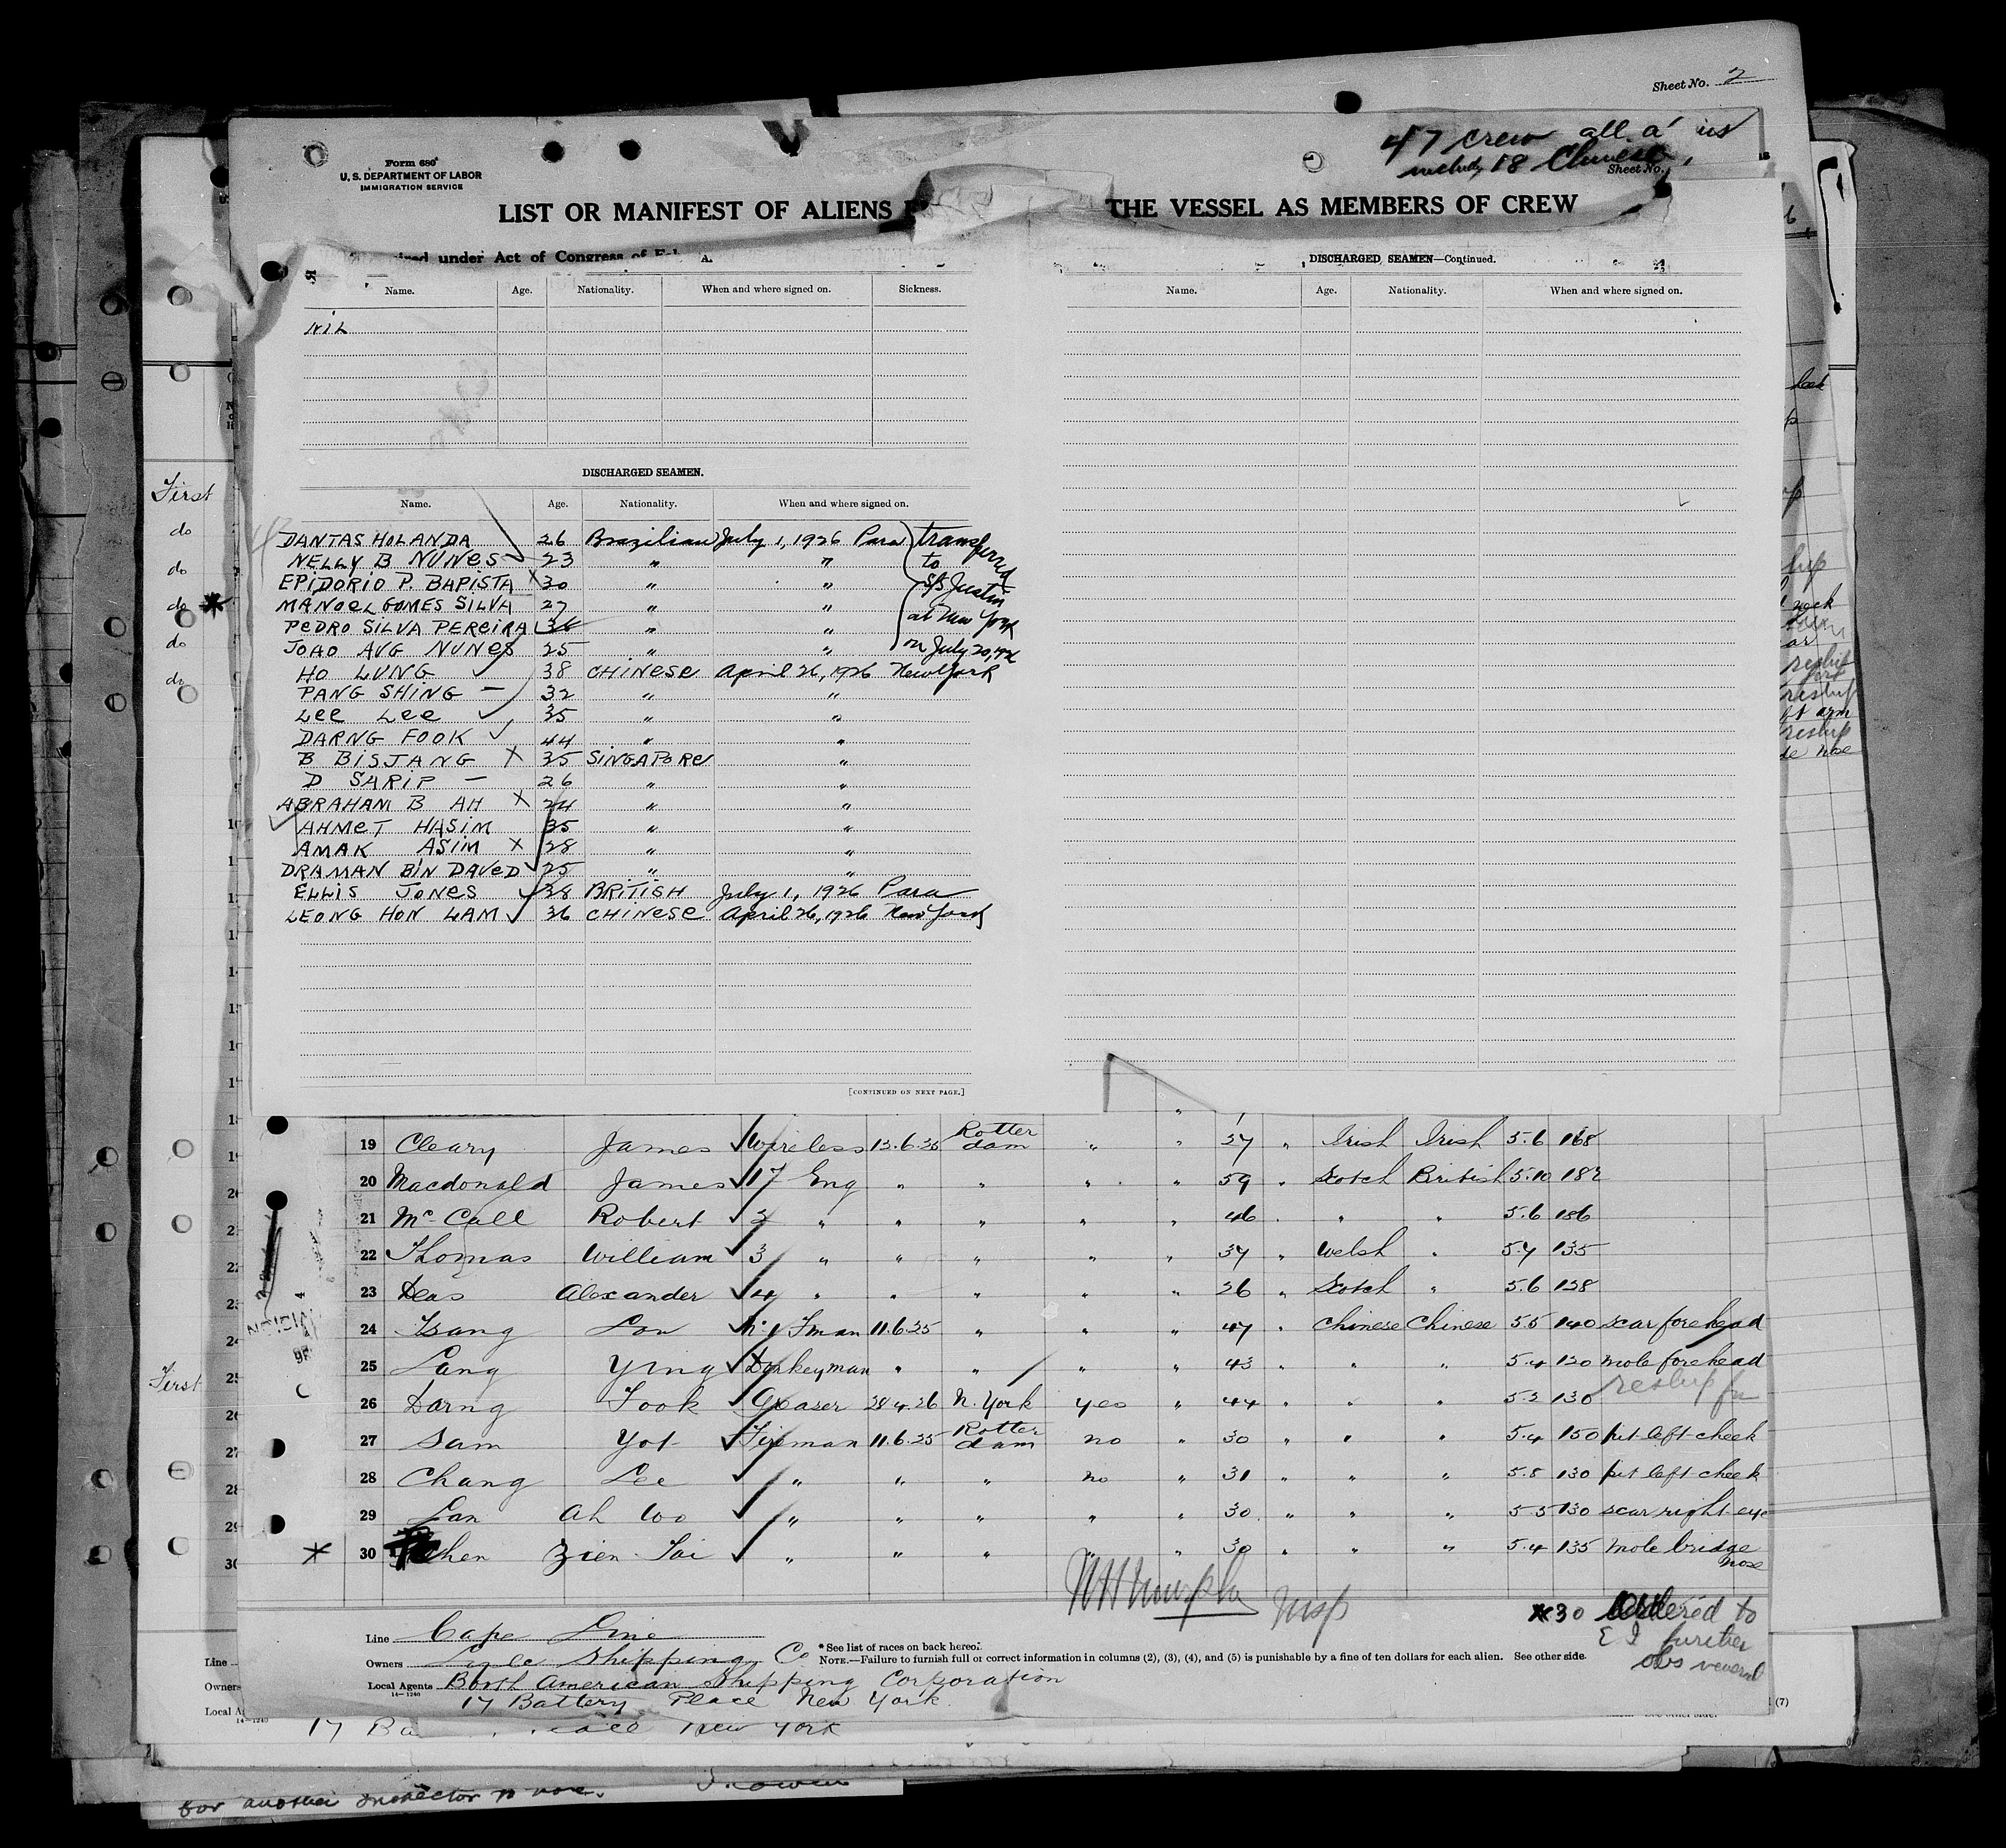 Sheet No. 2
47 crew all a' us
includg 18 Chinese,
Form 680
U. S. DEPARTMENT OF LABOR
IMMIGRATION SERVICE
Sheet No.
LIST OR MANIFEST OF ALIENS THE VESSEL AS MEMBERS OF CREW
under Act of Congress of
A.
Name. Age. Nationality. When and where signed on. Sickness.
NIL
DISCHARGED SEAMEN.
Name. Age. Nationality. When and where signed on.
DANTAS HOLANDA 26 Brazilian July 1, 1926 Para transferred
NELLY B NUNES 23 " " to
EPIDORIO P. BAPISTA X 30 " " S/S Justin
MANOEL GOMES SILVA 27 " " at New York
PEDRO SILVA PEREIRA 36 " "
JOAO AUG NUNES 25 " " on July 20, 1926
HO LUNG 38 CHINESE April 26, 1926 New York
PANG SHING – 32 " "
LEE LEE ✓ 35 " "
DARNG FOOK ✓ 44 " "
B BISTANG X 35 SINGAPORE "
D SARIP – 26 " "
ABRAHAM B AH X 24 " "
✓ AHMET HASIM 35 " "
AMAK ASIM X 28 " "
DRAMAN BIN DAVED ✓ 25 " "
ELLIS JONES ✓ 38 BRITISH July 1, 1926 Para
LEONG HON LAM ✓ 36 CHINESE April 26, 1926 New York
[CONTINUED ON NEXT PAGE.]
DISCHARGED SEAMEN—Continued.
Name. Age. Nationality. When and where signed on.
First
do
do
do *
do
do
First
19 Cleary James ✓ Wireless 12.6.25 Rotterdam " " 37 " Irish Irish 5.6 168
20 Macdonald James ✓ 1st Eng " " " " 59 " Scotch British 5.10 182
21 McCall Robert ✓ 2 " " " " " 46 " " " 5.6 186
22 Thomas William ✓ 3 " " " " " 37 " Welsh " 5.7 135
23 Deas Alexander ✓ 4 " " " " " 26 " Scotch " 5.6 128
24 Tsang Lou No 1 Fman 11.6.25 " " " 47 " Chinese Chinese 5.5 140 scar forehead
25 Lang Ying ✓ Donkeyman " " " " 43 " " " 5.4 120 mole forehead
26 Darng Fook ✓ Greaser 28.4.26 N. York yes " 44 " " " 5.2 130 reship
27 Sam Yot ✓ Fireman 11.6.25 Rotterdam no " 30 " " " 5.4 150 pit left cheek
28 Chang Lee ✓ " " " no " 31 " " " 5.8 130 pit left cheek
29 Lan Ah Woo ✓ " " " " " 30 " " " 5.5 130 scar right eye
* 30 Chen Zien Sai ✓ " " " " " 30 " " " 5.4 135 mole bridge nose
Insp
*30 Ordered to
E I further
obs venereal
Line Cape Line
Owners Lyle Shipping Co
Local Agents North American Shipping Corporation
14—1240
17 Battery Place New York
* See list of races on back hereof.
NOTE.—Failure to furnish full or correct information in columns (2), (3), (4), and (5) is punishable by a fine of ten dollars for each alien. See other side.
Line
Owners
Local A
14—1240
17 Ba New York
(7)
for another inspector